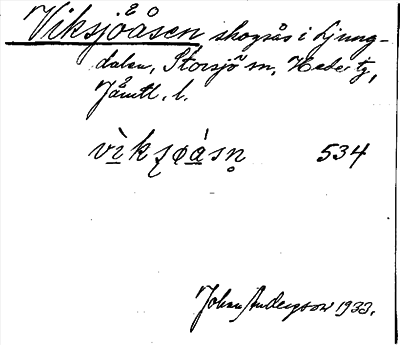 Viksjöåsen skogsås i Ljung-
dalen, Storsjö sn, Hede tg,
Jämtl. l.
vìksjøásn̥ 534
Johan Andersson 1933.